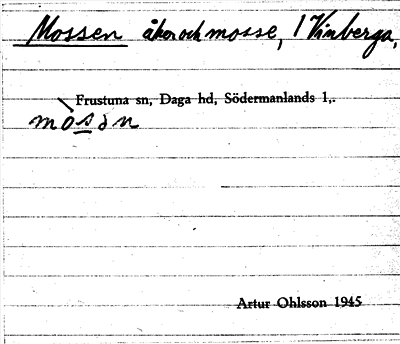 Mossen åker och mosse, 1 Vinberga,
Frustuna sn, Daga hd, Södermanlands l,.
mòsən
Artur Ohlsson 1945